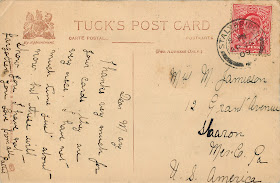 TUCK'S POST CARD
CARTE POSTALE.
POSTKARTE.
(For Address Only.)
Dear May
Thanks very much for
your cards they are
very nice. I have not
much time just about
now but these will
you I have not
forgotten you. Love from
Miss M Jamieson
12 Grant Avenue
Sharon
Mer. Co. Pa
U. S. America